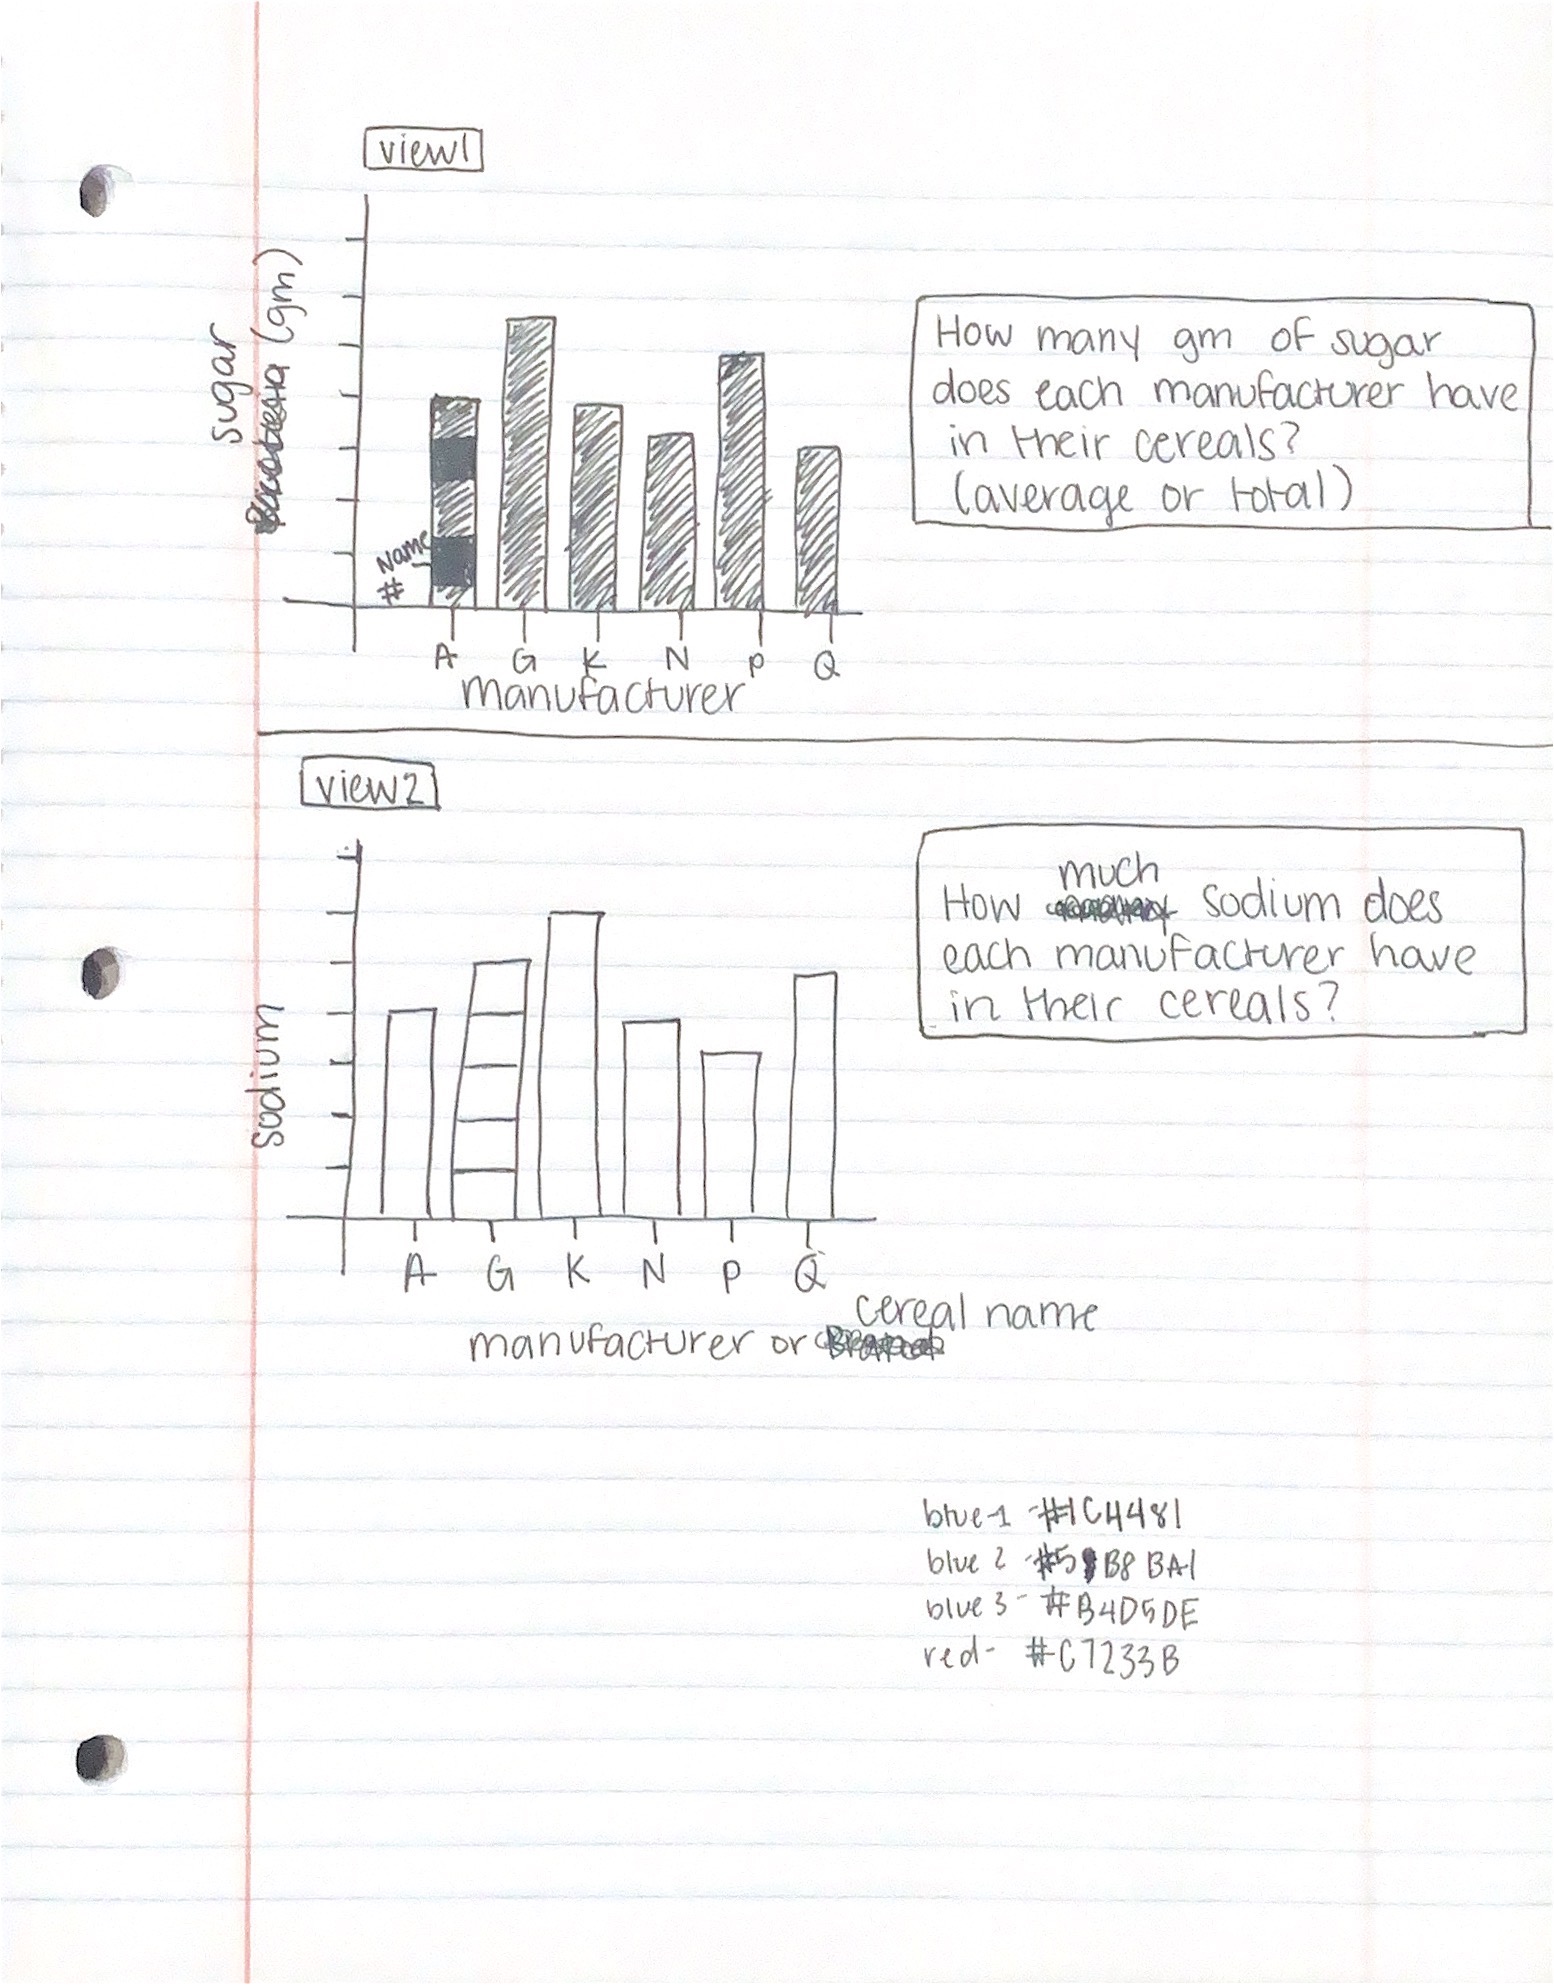 view1
sugar
(gm)
Name
#
A G K N P Q
manufacturer
How many gm of sugar
does each manufacturer have
in their cereals?
(average or total)
view2
sodium
A G K N P Q
cereal name
manufacturer or
much
How sodium does
each manufacturer have
in their cereals?
blue-1 #1C4481
blue 2 - #5 B8 BA1
blue 3 - #B4D5DE
red- #C7233B